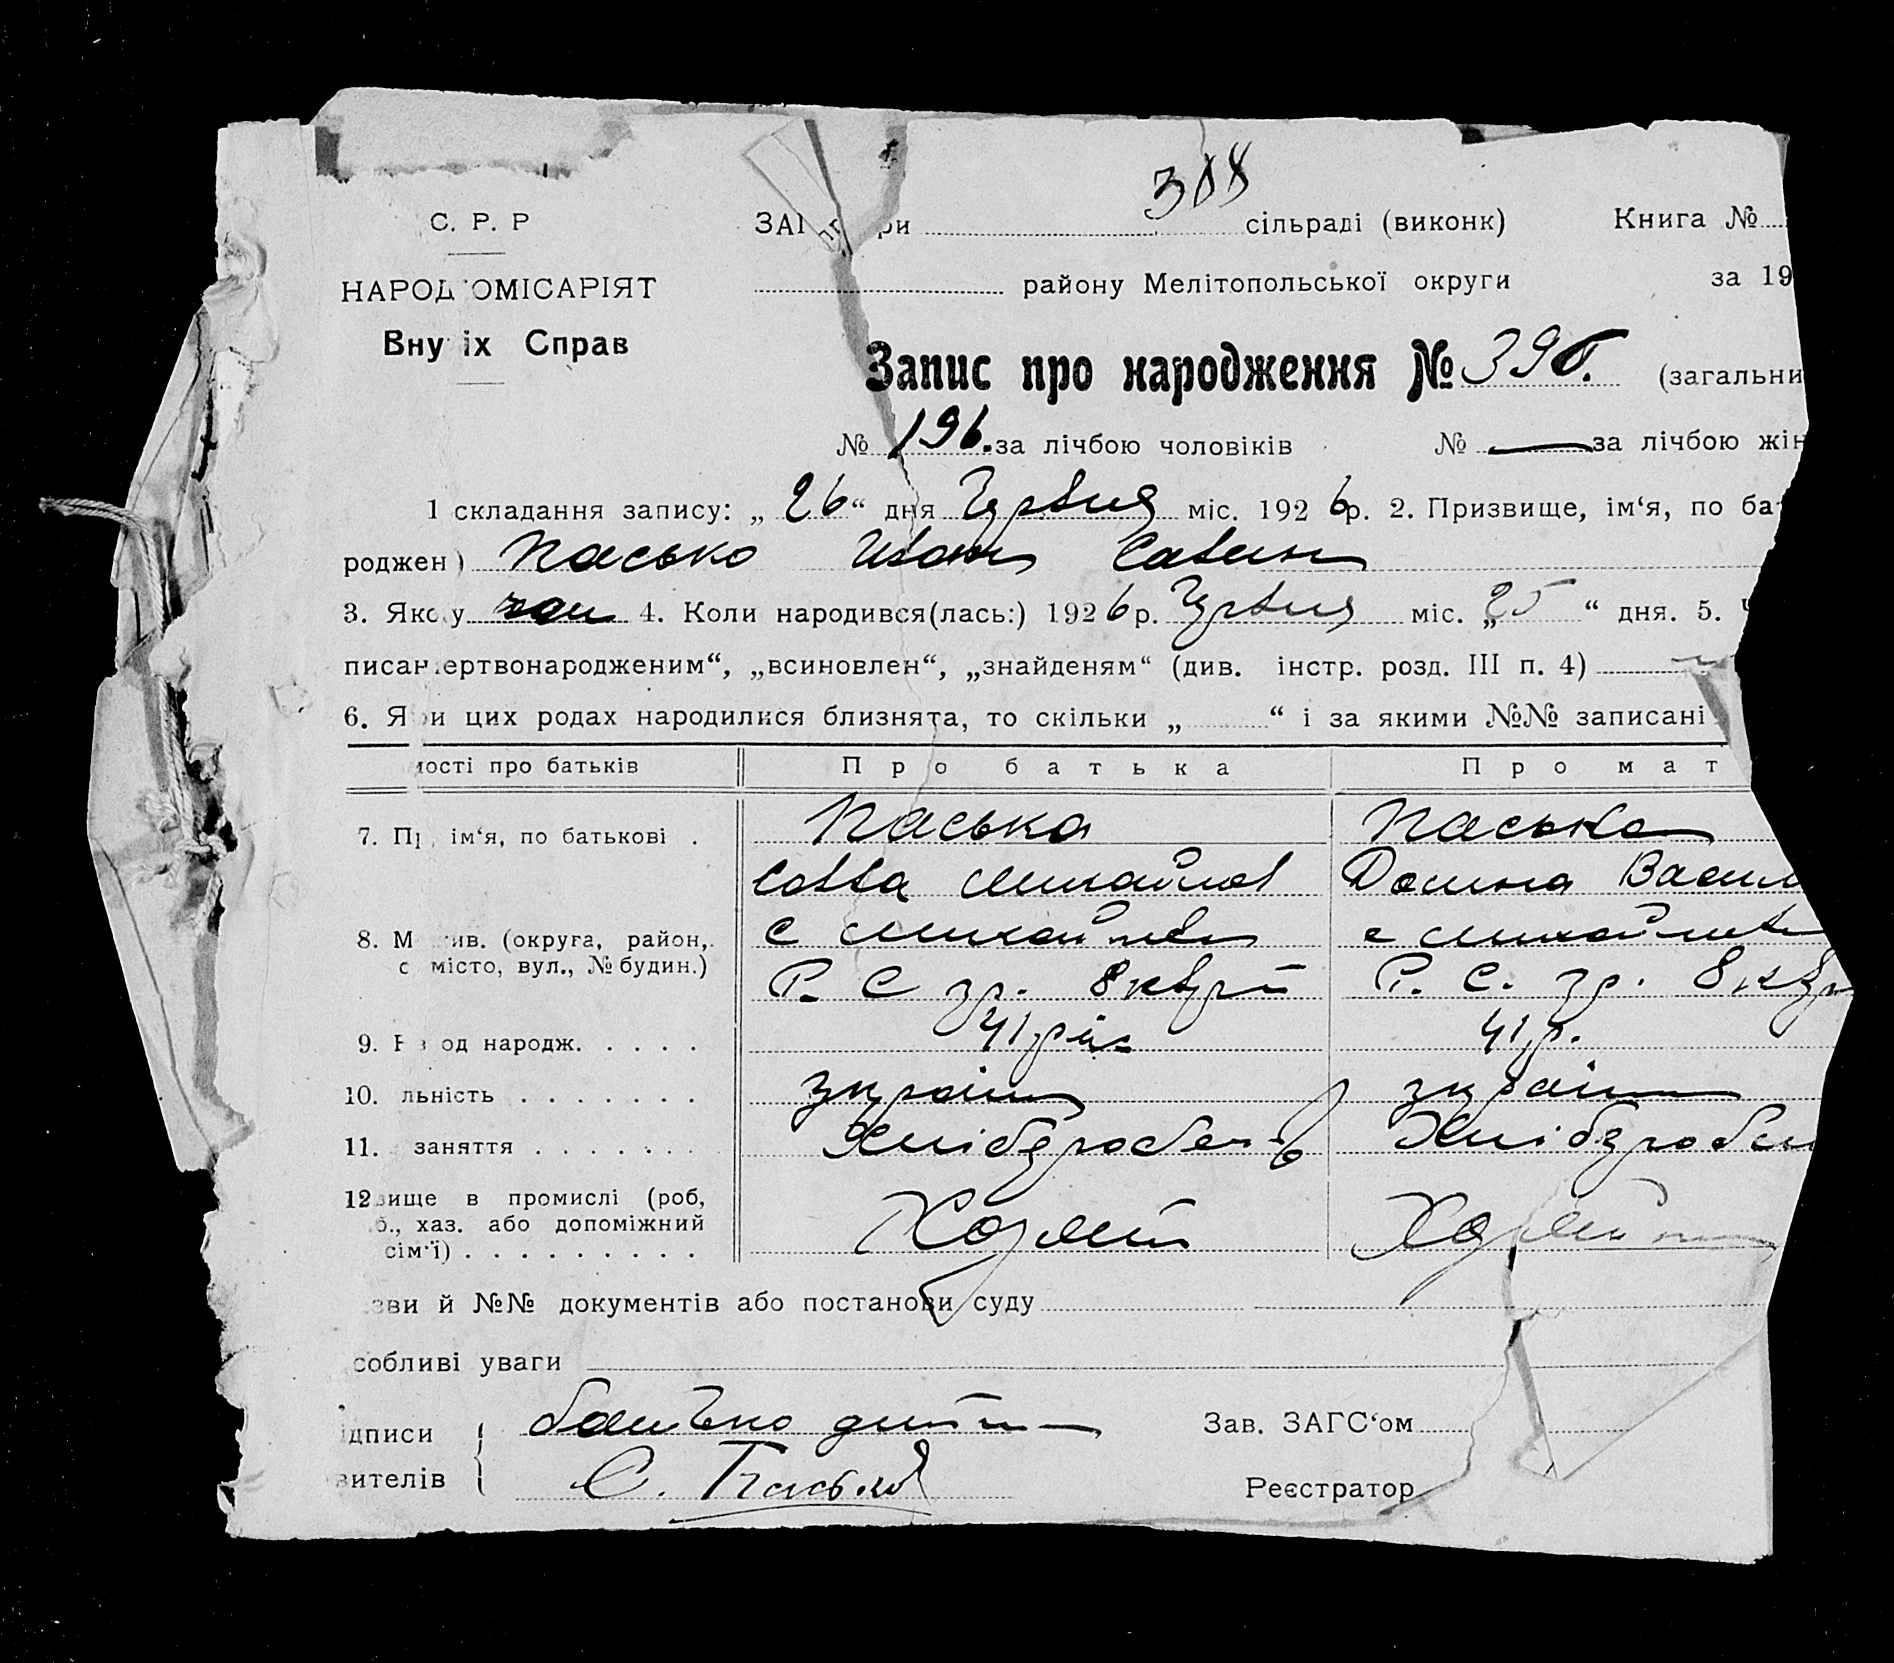 308
С. Р. Р ЗАГ ри сільраді (виконк) Книга №
НАРОД ОМІСАРІЯТ району Мелітопольської округи за 19
Вну іх Справ
Запис про народження № 396. (загальни
№ 196. за лічбою чоловіків № — за лічбою жін
1 складання запису: „ 26 “ дня Червня міс. 1926 р. 2. Призвище, ім‘я, по ба
роджен ) Пасько Иван Савин
3. Яко у чол 4. Коли народився(лась:) 1926 р. Червня міс. „ 25 “ дня. 5.
писан ертвонародженим“, „всиновлен“, „знайденям“ (див. інстр. розд. III п. 4)
6. Я ри цих родах народилися близнята, то скільки „ “ і за якими №№ записані
мості про батьків Про батька Про мат
7. Пр ім‘я, по батькові . Пасько Пасько
Савва Михайлов Домна Васил
8. М ив. (округа, район, с Михайлівка с Михайлівка
с місто, вул., № будин.) Р. С зр. 8 Р. С. зр. 8
9. В од народж. . . . . 41 рік 41 р.
10. льність . . . . . . . україн україн
11. заняття . . . . . . . Хлібороб Хлібороб
12 вище в промислі (роб,
б., хаз. або допоміжний
сім‘ї) . . . . . . . . .
зви й №№ документів або постанови суду
собливі уваги
ідписи батько дитини Зав. ЗАГС‘ом
вителів С. Пасько Реєстратор